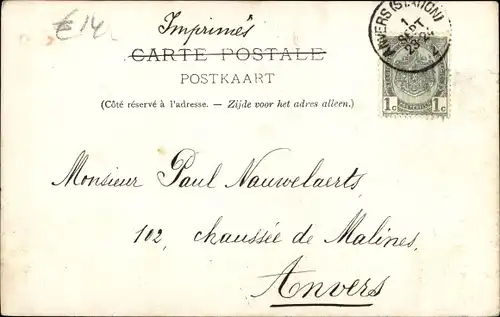 €14.
Imprimés
CARTE POSTALE
POSTKAART
(Côté réservé à l'adresse. — Zijde voor het adres alleen.)
ANVERS (STATION)
1
SEPT
23-24
1c 1c
Monsieur Paul Nauwelaerts,
102, chaussée de Malines,
Anvers